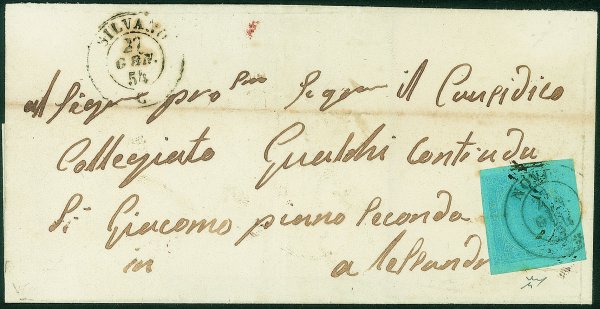 SILVANO
27
GEN.
54
al Sigre pro Sigre il Causidico
Collegiato Gualchi Contrada
Di Giacomo piano Secondo
in Alessandr
NOV